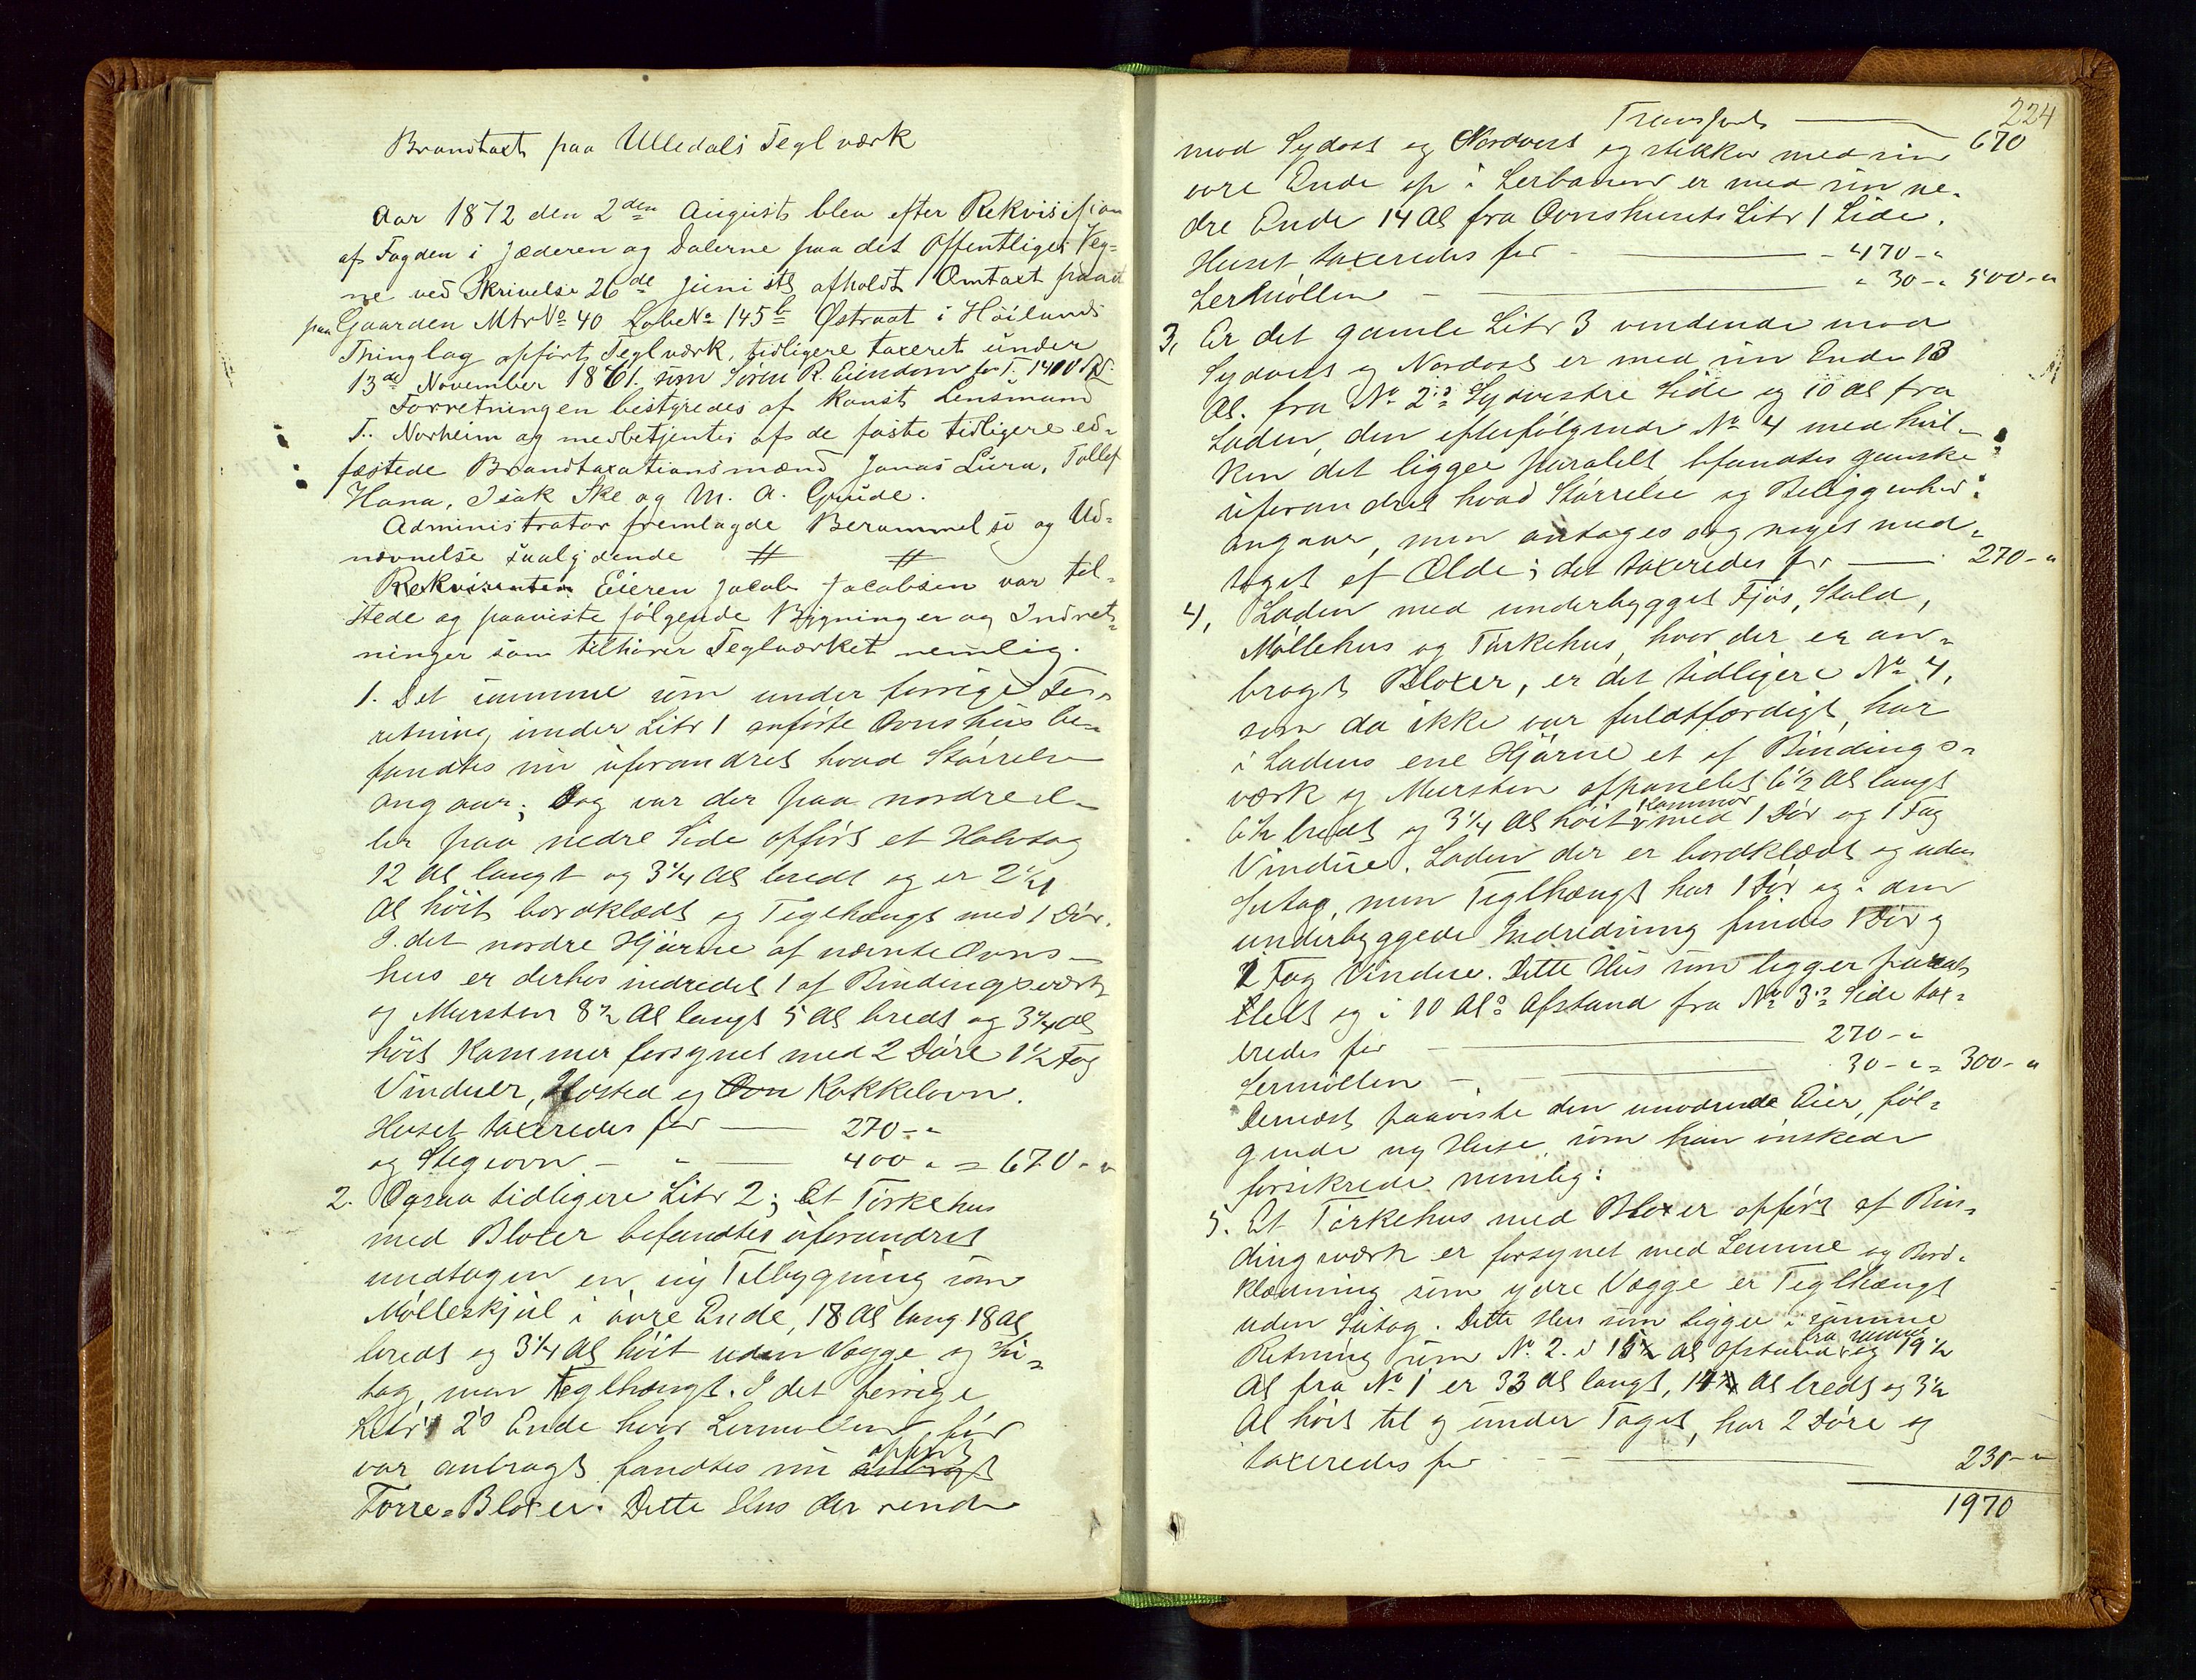 Brandtaxt paa Ulledals Teglværk
Aar 1872 den 2den August blev efter Rekvisition
af Fogden i Jæderen og Dalerne paa det Offentliges Veg-
ne ved Skrivelse 26de Juni sts afholdt Omtaxt
paa Gaarden Mtr No 40 Løbe No 145b Østraat i Høilands
Thinglag opført Teglværk, tidligere taxeret under
13de November 1861. som Søren R. Eiendom for
Forretningen bestyredes af Konst Lensmand
T. Norheim og medbetjentes af de faste tidligere ed-
fæstede Brandtaxationsmænd Jonas Lura, Tollef
Hana, Isak Ske og M. A. Grude.
Administrator fremlagde Berammelse og Ud-
nævnelse saalydende # #
Rekvirenten Eieren Jacob Jacobsen var til-
stede og paaviste følgende Bygninger og Indret-
ninger som tilhører Teglværket nemlig.
1. Det samme som under forrige For-
retning under Litr 1 anførte Ovnshus be-
fandtes nu uforandret hvad Størrelse
angaar; Dog var der paa nordre el-
ler paa nedre Side opført et Halvtag
12 Al langt og 3 1/4 Al bredt og er 2 1/2
Al høit bordklædt og Teglhængt med 1 Dør.
I det nordre Hjørne af nævnte Ovns-
hus er derhos indredet 1 af Bindingsværk
og Mursten 8 1/2 Al langt 5 Al bredt og 3 1/4 Al
høit Kammer forsynet med 2 Døre 1 1/2 Fag
Vinduer, Ildsted og Ovn Kakkelovn.
Huset taxeredes for — 270 - "
og Stegeovn - " — 400 " = 670 - "
2. Ogsaa tidligere Litr 2; Et Tørkehus
med Bloxer befandtes uforandret
undtagen en ny Tilbygning som
Mølleskjul i øvre Ende, 18 Al lang 18 Al
bredt og 3 1/4 Al høit uden Vægge og Su-
tag, men Teglhængt. I det forrige
Litr 2s Ende hvor Lermøllen før
var anbragt fandtes nu opført anbragt
Tørre-Bloxer. Dette Hus der vender
224
Transport —
mod Sydost og Nordvest og stikker med sin 670
øvre Ende op i Lerbakken er med sin ne-
dre Ende 14 Al fra Ovnshusets Litr 1 Side.
Huset taxeredes for — 470 - "
Lermøllen — " 30 - " 500 - "
3, Er det gamle Litr 3 vendende mod
Sydvest og Nordost er med sin Ende 13
Al. fra No 2s Sydvestre Side og 10 Al fra
Laden, den efterfølgende No 4 med hvil-
ken det ligger paralelt befandtes ganske
uforandret hvad Størrelse og Beliggenhed
angaar, men antages dog noget med-
taget af Ælde; det taxeredes for — 270 - "
4, Laden med underbygget Fjøs, Stald,
Møllehus og Tørkehus, hvor der er an-
bragt Bloxer, er det tidligere No 4,
som da ikke var fuldtfærdigt, har
i Ladens ene Hjørne et af Bindings-
værk og Mursten afpanelet 6 1/2 Al langt
6 1/2 bredt og 3 1/4 Al høit Kammer med 1 Dør og 1 Fag
Vindue. Laden der er bordklædt og uden
Sutag, men Teglhængt har 1 Dør og i den
underbyggede Indredning findes 1 Dør og
2 Fag Vindue. Dette Hus som ligger paral-
lelt og i 10 Als Afstand fra No 3s Side tax-
eredes for — 270 - "
Lermøllen — 30 - " = 300 - "
Dernæst paaviste den nuværende Eier, føl-
gende ny Huse som han ønskede
forsikrede nemlig:
5. Et Tørkehus med Bloxer opført af Bin-
dingsværk er forsynet med Lemme og Bord-
klædning som ydre Vægge er Teglhængt
uden Sutag. Dette Hus som ligger i samme
Retning som No. 2. i 15 Al Afstand fra samme og 19 1/2
Al fra No 1 er 33 Al langt, 14 Al bredt og 3 1/2
Al høit til og under Taget, har 2 Døre og
taxeredes for — 230 - "
1970